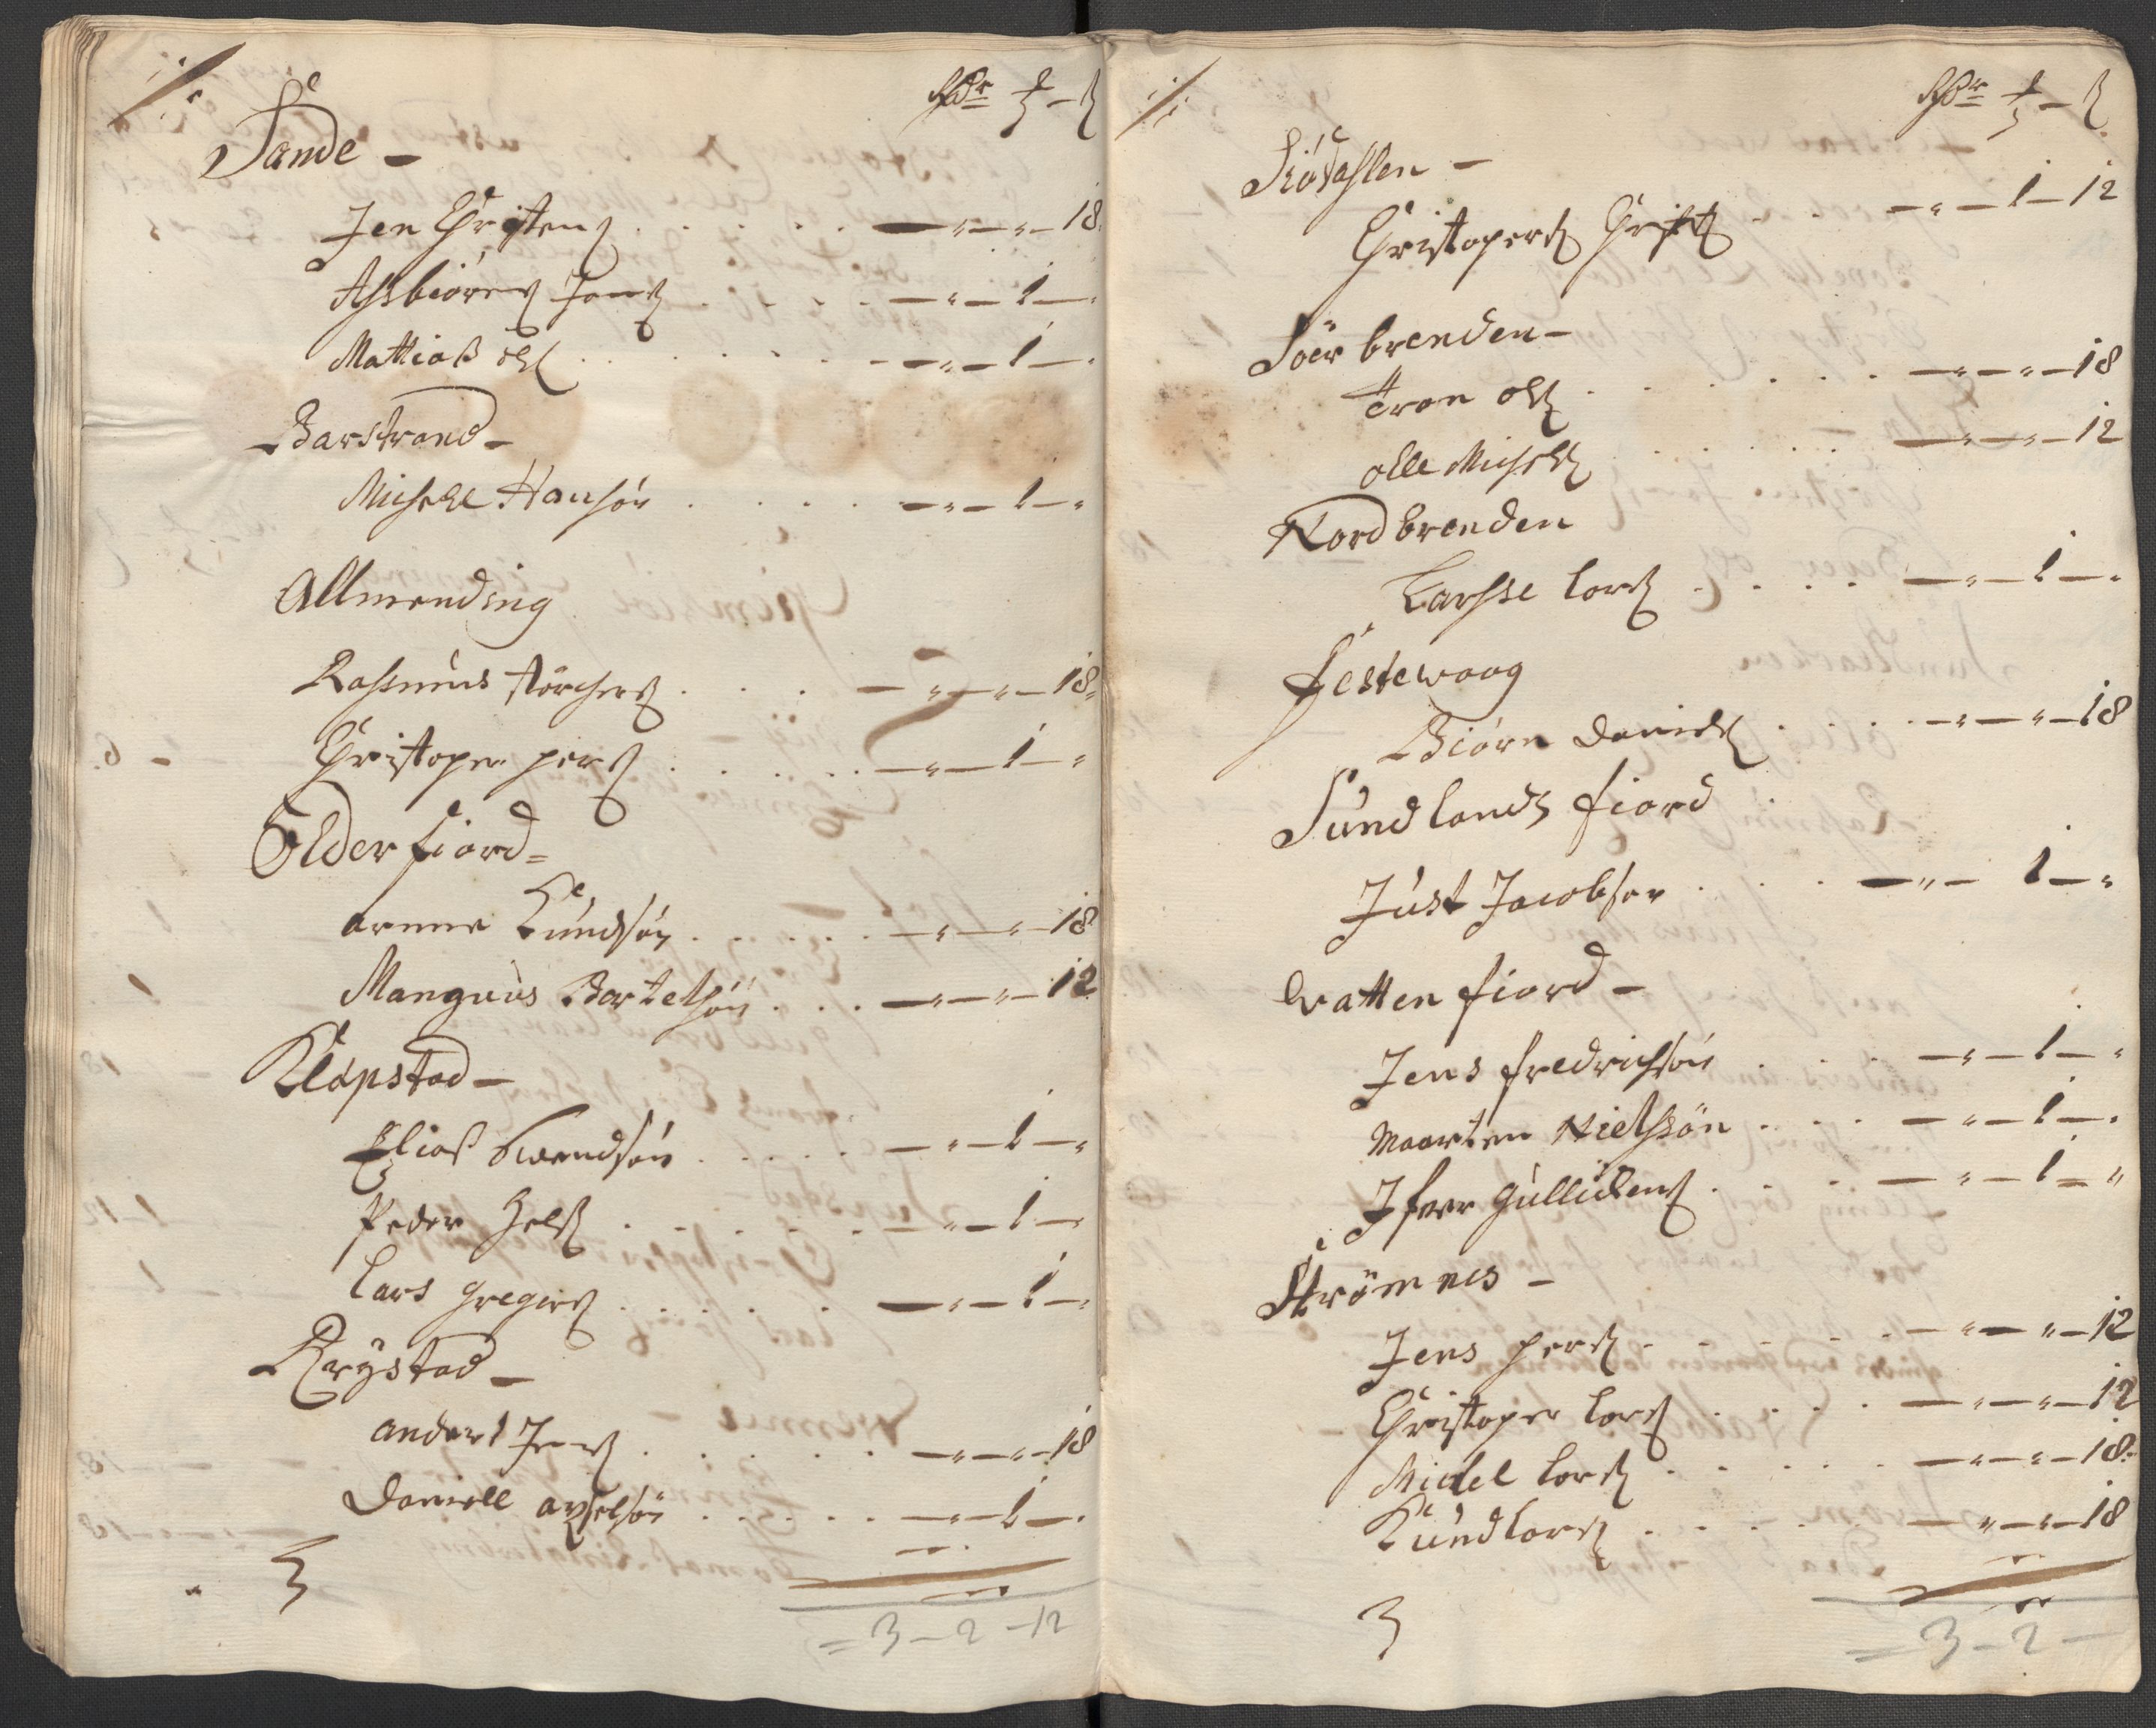 Rdr ₰ – ß
Sande –
Jen Christens . . . . . — " — " — 18
Assbiörns Jens . . . . — " — 1 — "
Mattias ols . . . . . — " — 1 — "
Barstrand –
Michele Hansön . . . . — " — 1 — "
Allmending
Rassmus . . . — " — " — 18
Christoper pers . . . . . — " — 1 — "
Olderfiord =
arnne Knudsön . . . . . — " — " — 18
Mangnus Bartelsön . . . — " — " — 12
Klepstad –
Elias Swendsön . . . . . — " — 1 — "
Peder Hels . . . . . — " — 1 — "
Lars gregers . . . . . — " — 1 — "
Rystad –
anders Jens . . . . . — " — " — 18
Daniell axselsön . . . . . — " — 1 — "
3
= 3 – 2 – 12
Rdr ₰ – ß
Christopers Christs . . — " — 1 — 12
Söer brenden –
Tron ols . . . . . . — " — " — 18
olle Michels . . . . . . — " — " — 12
Nord brenden
Larsse Lars . . . . — " — 1 — "
Festewaag
Biörn Daniels . . . . — " — " — 18
Sundlands fiord
Just Jacobsen . . . — " — 1 — "
Watten fiord –
Jens fredrichsön . . . — " — 1 — "
Maarten Nielssön . . . . — " — 1 — "
Jfver gullichens . . . . — " — 1 — "
Strömnes –
Jens pers . . . . . — " — " — 12
Christoper Lars . . . . — " — " — 12
Michel Lars . . . . . — " — " — 18
Knud Lars . . . . . — " — " — 18
3
— 3 – 2 —